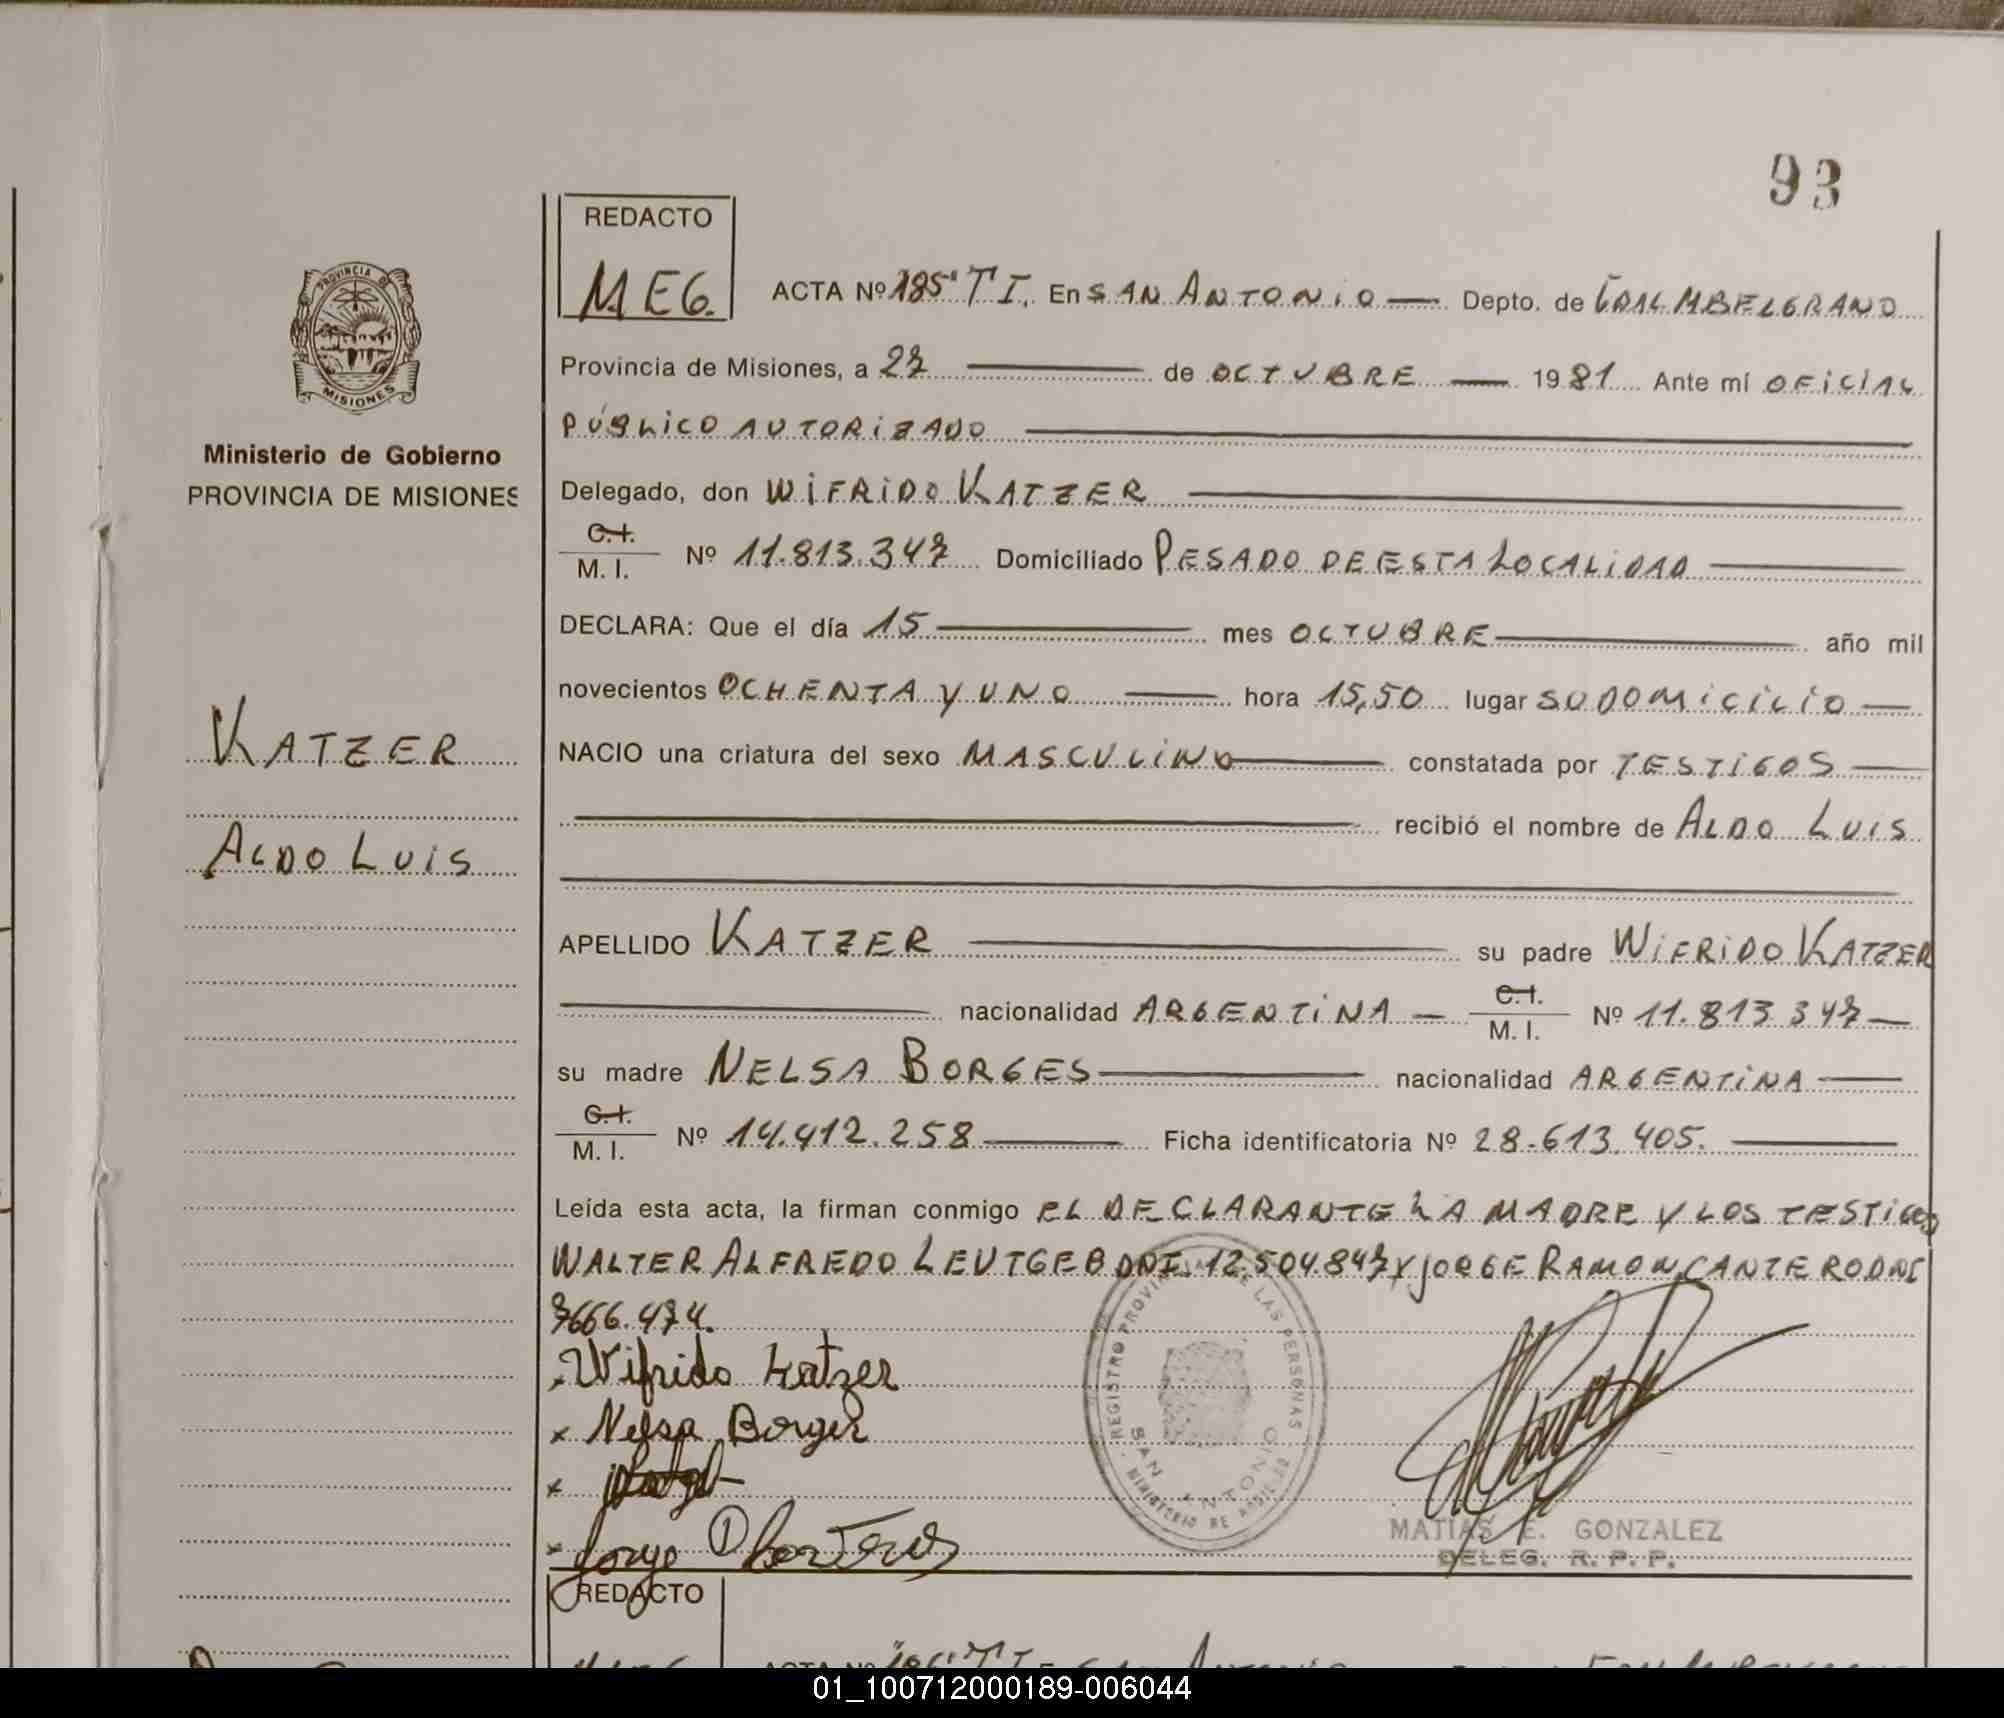 93
REDACTO
M.E.G.
ACTA Nº 185" T I. En SAN ANTONIO Depto. de GRAL M BELGRANO
Provincia de Misiones, a 27 de OCTUBRE 1981 Ante mí OFICIAL
PÚBLICO AUTORIZADO
Delegado, don WIFRIDO KATZER
C.I. / M.I. Nº 11.813.347 Domiciliado PESADO DE ESTA LOCALIDAD
DECLARA: Que el día 15 mes OCTUBRE año mil
novecientos OCHENTA Y UNO hora 15,50 lugar SU DOMICILIO
NACIO una criatura del sexo MASCULINO constatada por TESTIGOS
recibió el nombre de ALDO LUIS
APELLIDO KATZER su padre WIFRIDO KATZER
nacionalidad ARGENTINA C.I. / M.I. Nº 11.813.347
su madre NELSA BORGES nacionalidad ARGENTINA
C.I. / M.I. Nº 14.412.258 Ficha identificatoria Nº 28.613.405.
Leída esta acta, la firman conmigo EL DECLARANTE LA MADRE Y LOS TESTIGOS
WALTER ALFREDO LEUTGEB DNI. 12.504.847 Y JORGE RAMON CANTERO DNI
7666.474.
Wifrido Katzer
x Nelsa Borges
x
x Jorge
REGISTRO PROVINCIAL DE LAS PERSONAS
SAN ANTONIO
MINISTERIO DE
MATIAS E. GONZALEZ
DELEG. R. P. P.
PROVINCIA DE
MISIONES
Ministerio de Gobierno
PROVINCIA DE MISIONES
KATZER
ALDO LUIS
REDACTO
01_100712000189-006044